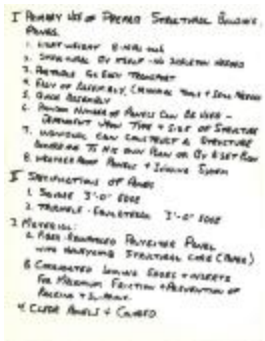 I PRIMARY USE OF PREFAB STRUCTURAL BUILDING
PANELS.
1. LIGHTWEIGHT
2. STRUCTURAL BY ITSELF - NO SKELETON NEEDED
3. PORTABLE EASY TRANSPORT
4. EASY OF ASSEMBLY,
5. QUICK ASSEMBLY
6. RANDOM NUMBER OF PANELS CAN BE USED -
DEPENDENT UPON TYPE + SIZE OF STRUCTURE
7. INDIVIDUAL CAN CONSTRUCT A STRUCTURE
ACCORDING TO HIS OWN PLAN OR BY A SET PLAN
8. WEATHER PROOF PANELS + JOINING SYSTEM
II SPECIFICATIONS OF PANELS
1. SQUARE 3'-0" EDGE
2. TRIANGLE - EQUILATERAL 3'-0" EDGE
3. MATERIAL:
A. FIBER-REINFORCED POLYESTER PANEL
WITH HONEYCOMB STRUCTURAL CORE (PAPER)
B. CORRUGATED JOINING EDGES + INSERTS
FOR MAXIMUM FRICTION + PREVENTION OF
4. CLEAR PANELS + COLORED